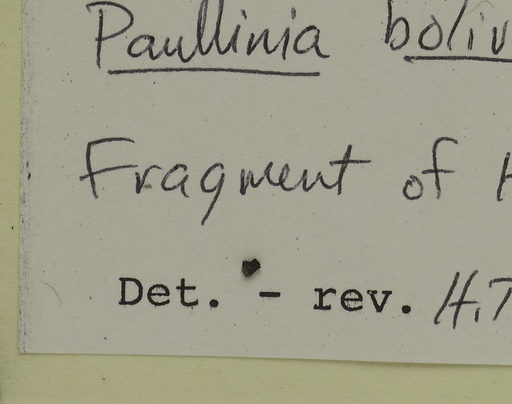 Paullinia boliv
Fragment of H
Det. - rev. H.T